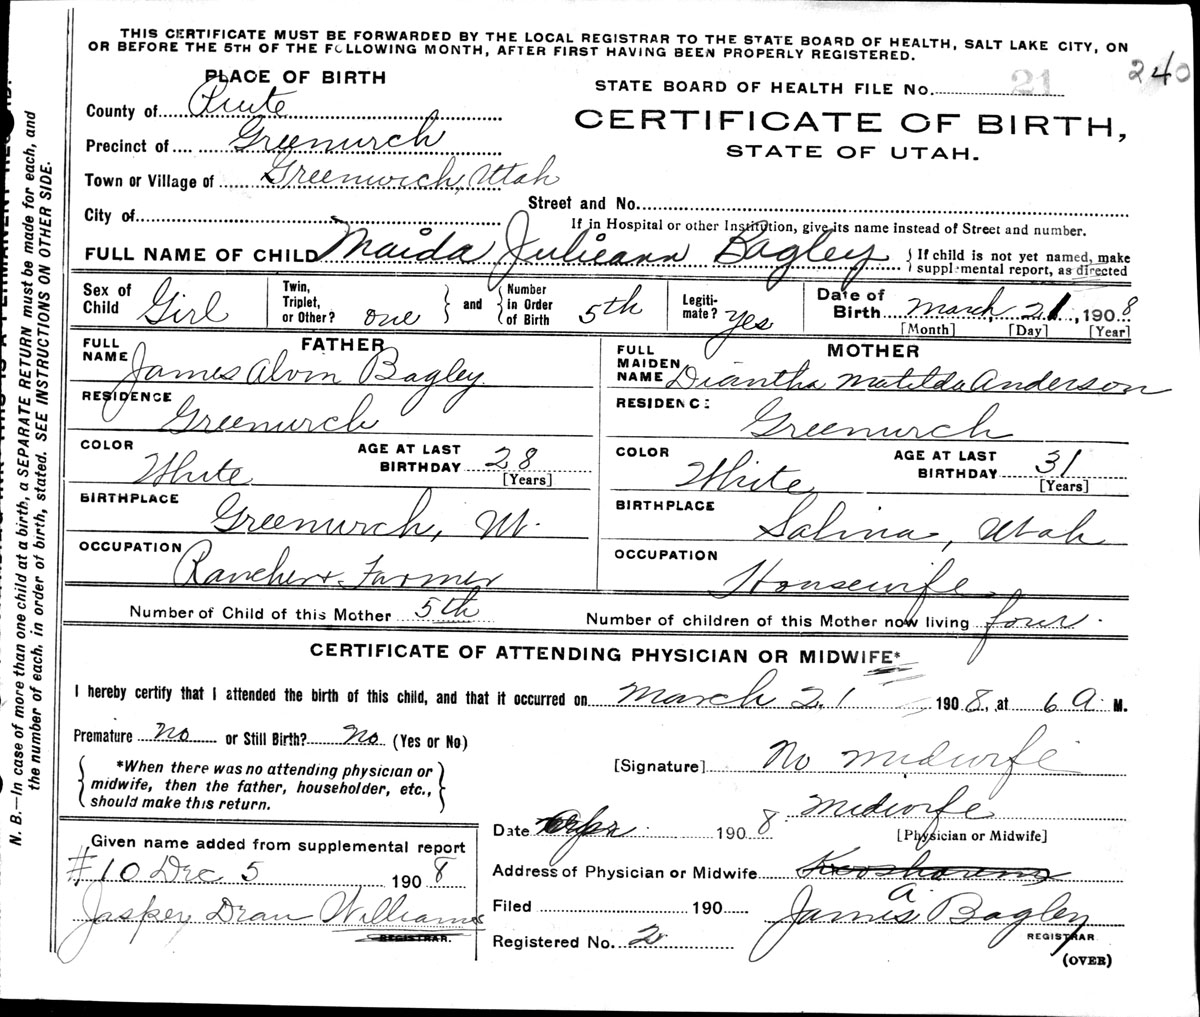 THIS CERTIFICATE MUST BE FORWARDED BY THE LOCAL REGISTRAR TO THE STATE BOARD OF HEALTH, SALT LAKE CITY, ON
OR BEFORE THE 5TH OF THE FOLLOWING MONTH, AFTER FIRST HAVING BEEN PROPERLY REGISTERED.
240
PLACE OF BIRTH
STATE BOARD OF HEALTH FILE No. 21
County of Piute
CERTIFICATE OF BIRTH,
Precinct of Greenwich
STATE OF UTAH.
Town or Village of Greenwich, Utah
Street and No.
City of
If in Hospital or other Institution, give its name instead of Street and number.
FULL NAME OF CHILD Maida Julieann Bagley { If child is not yet named, make
supplemental report, as directed
Sex of Child Girl Twin, Triplet, or Other? one } and { Number in Order of Birth 5th Legiti-mate? Yes Date of Birth March 21, 1908
[Month] [Day] [Year]
FATHER
FULL NAME James Alvin Bagley
RESIDENCE Greenwich
COLOR White AGE AT LAST BIRTHDAY 28 [Years]
BIRTHPLACE Greenwich, Ut.
OCCUPATION Rancher & Farmer
MOTHER
FULL MAIDEN NAME Diantha Matilda Anderson
RESIDENCE Greenwich
COLOR White AGE AT LAST BIRTHDAY 31 [Years]
BIRTHPLACE Salina, Utah
OCCUPATION Housewife
Number of Child of this Mother 5th Number of children of this Mother now living four.
CERTIFICATE OF ATTENDING PHYSICIAN OR MIDWIFE*
I hereby certify that I attended the birth of this child, and that it occurred on March 21 1908, at 6 A. M.
Premature no or Still Birth? No (Yes or No)
{ *When there was no attending physician or
midwife, then the father, householder, etc.,
should make this return. }
[Signature] No midwife
Date Apr 1908 Midwife
[Physician or Midwife]
Given name added from supplemental report
#10 Dec 5 1908
Jasper Dean Williams
REGISTRAR.
Address of Physician or Midwife Koosharem
Filed 190 James A Bagley
Registered No. 2 REGISTRAR
(OVER)
N. B.—In case of more than one child at a birth, a SEPARATE RETURN must be made for each, and
the number of each, in order of birth, stated. SEE INSTRUCTIONS ON OTHER SIDE.